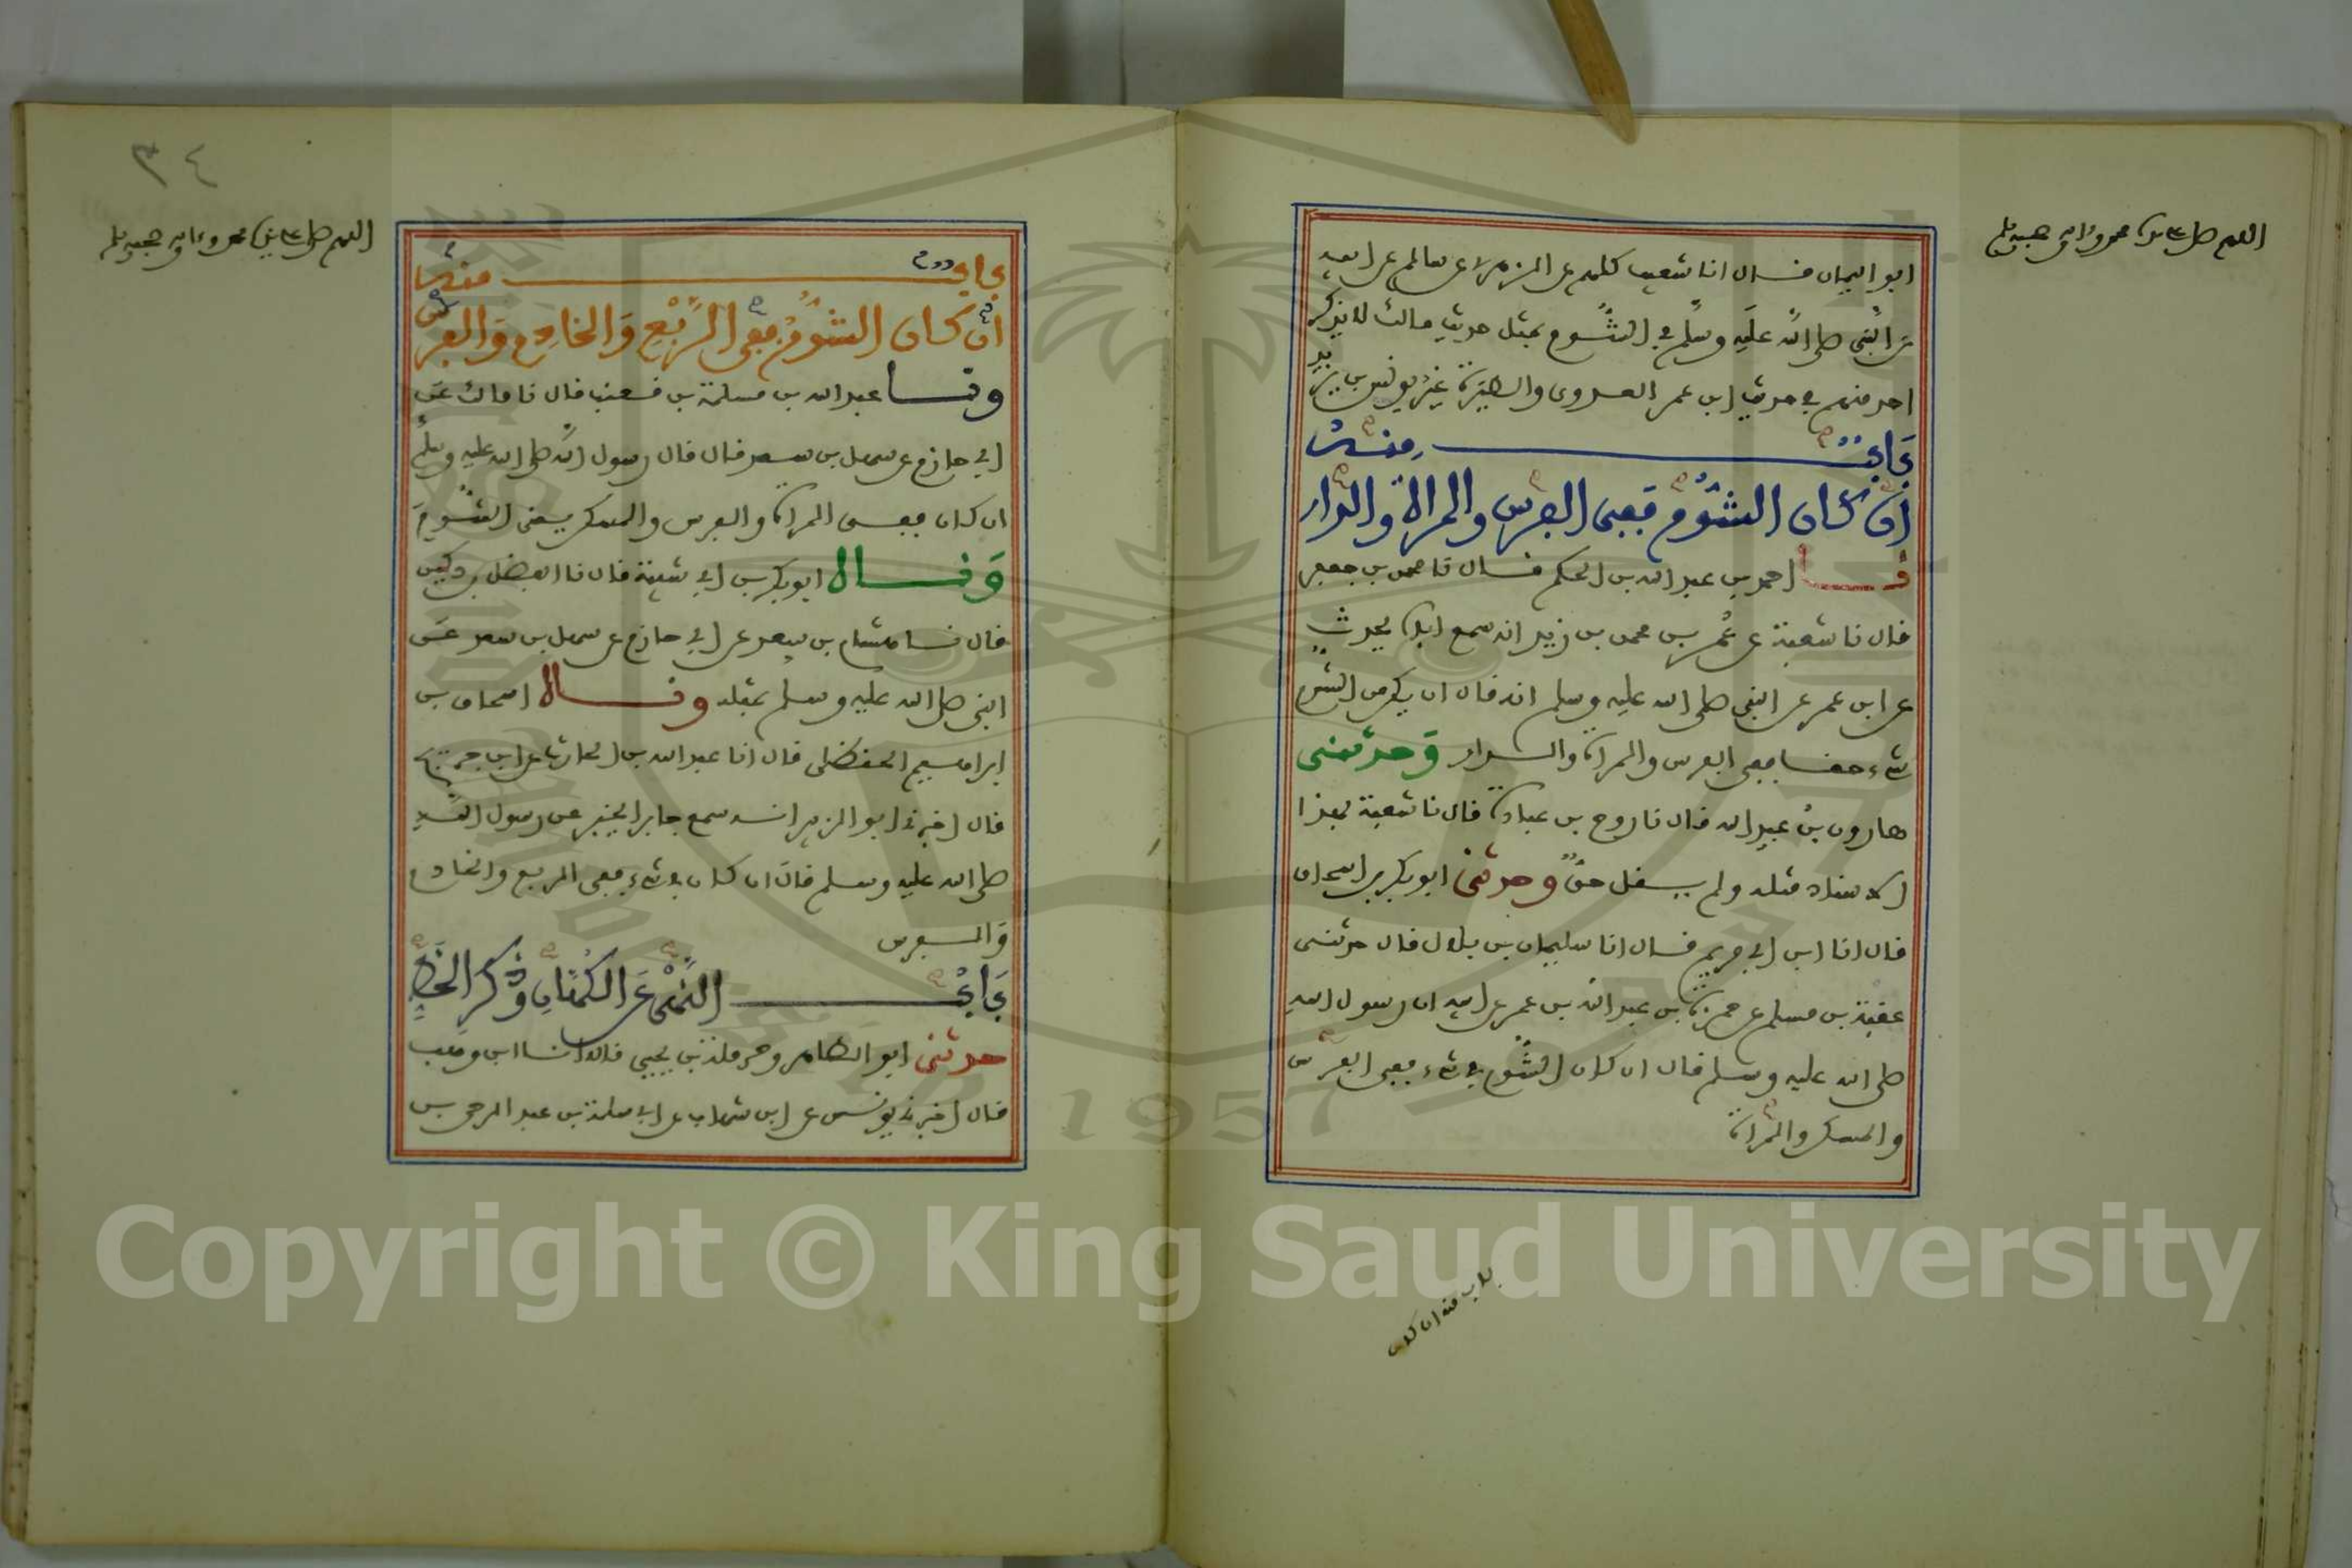 اللهم صل على سيدنا محمد وءاله وصحبه وسلم
ابو اليمان قال انا شعيب كلهم عن الزهري عن سالم عن ابيه
عن النبي صلى الله عليه وسلم في الشؤم بمثل حديث مالك لا يذكر
احد منهم في حديث ابن عمر العدوى والطيرة غير يونس بن يزيد
باب منه
ان كان الشؤم ففي الفرس والمراة والدار
نا احمد بن عبد الله بن الحكم قال نا محمد بن جعفر
قال نا شعبة عن عمر بن محمد بن زيد انه سمع اباه يحدث
عن ابن عمر عن النبي صلى الله عليه وسلم انه قال ان يكن من الشؤم
شيء حقا ففي الفرس والمراة والدار وحدثني
هارون بن عبد الله قال نا روح بن عبادة قال نا شعبة بهذا
الاسناد مثله ولم يقل حق وحدثني ابو بكر بن اسحاق
قال انا ابن ابي مريم قال انا سليمان بن بلال قال حدثني
عتبة بن مسلم عن حمزة بن عبد الله بن عمر عن ابيه ان رسول الله
صلى الله عليه وسلم قال ان كان الشؤم في شيء ففي الفرس
والمسكن والمراة
باب منه ان كان
٣٤
اللهم صل على سيدنا محمد وءاله وصحبه وسلم
باب منه
ان كان الشؤم ففي الربع والخادم والفرس
ونا عبد الله بن مسلمة بن قعنب قال نا مالك عن
ابي حازم عن سهل بن سعد قال قال رسول الله صلى الله عليه وسلم
ان كان ففي المراة والفرس والمسكن يعني الشؤم
وقال ابو بكر بن ابي شيبة قال نا الفضل بن دكين
قال نا هشام بن سعد عن ابي حازم عن سهل بن سعد عن
النبي صلى الله عليه وسلم بمثله وقال اسحاق بن
ابراهيم الحنظلي قال انا عبد الله بن الحارث عن ابن جريج
قال اخبرني ابو الزبير انه سمع جابرا يخبر عن رسول الله
صلى الله عليه وسلم قال ان كان في شيء ففي الربع والخادم
والفرس
باب النهي عن الكهان وذكر الخط
حدثني ابو الطاهر وحرملة بن يحيى قالا انا ابن وهب
قال اخبرني يونس عن ابن شهاب عن ابي سلمة بن عبد الرحمن بن
1957
Copyright © King Saud University